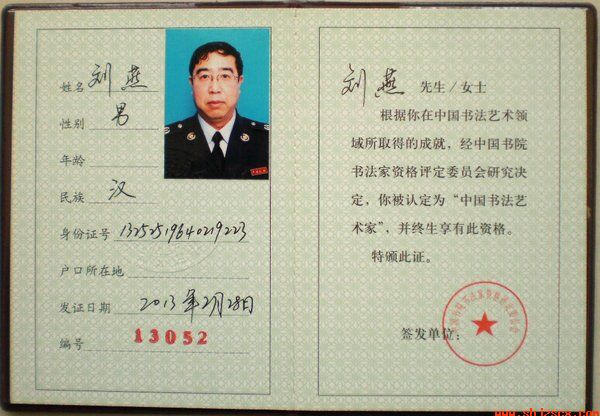 姓名 刘燕
性别 男
年龄
民族 汉
身份证号 132525196402192223
户口所在地
发证日期 2013年2月28日
编号 13052
刘燕 先生/女士
根据你在中国书法艺术领
域所取得的成就，经中国书院
书法家资格评定委员会研究决
定，你被认定为“中国书法艺
术家”，并终生享有此资格。
特颁此证。
签发单位：